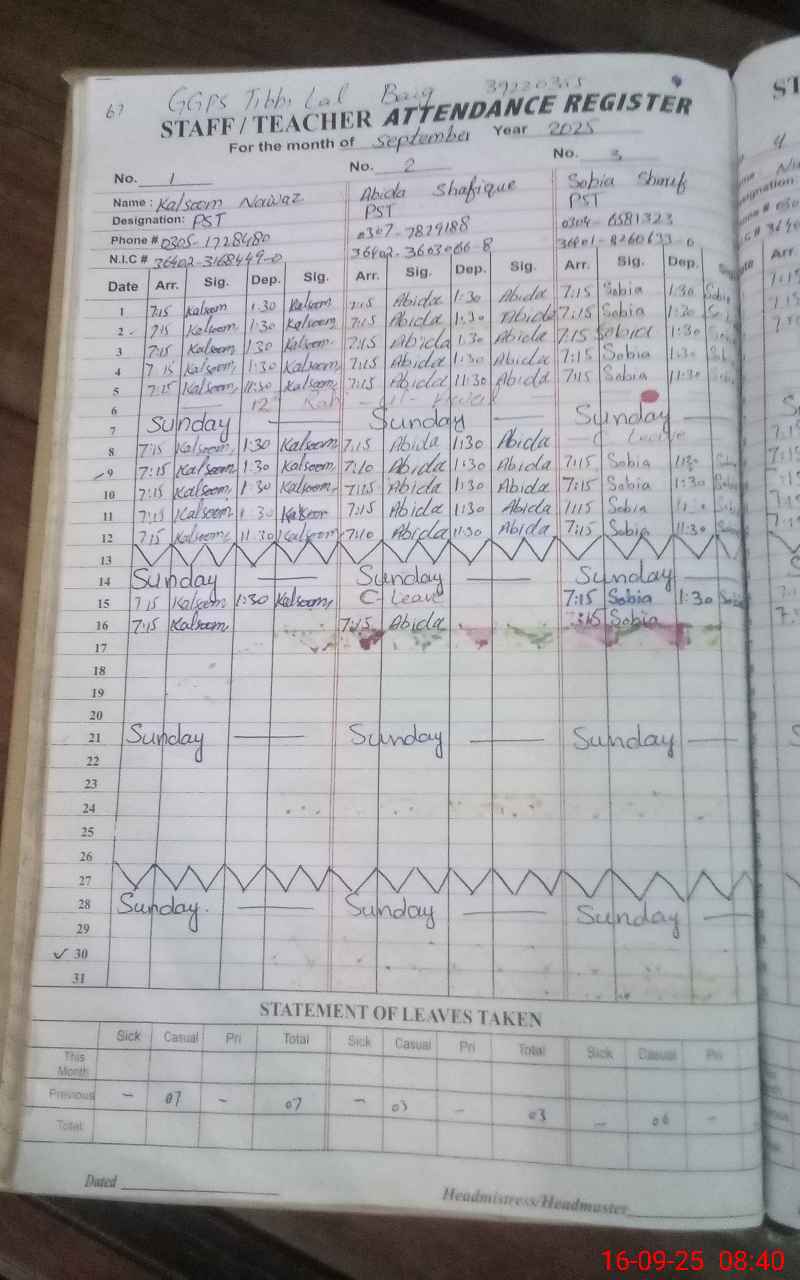 67 GGPS Tibbi Lal Baig 39230355
STAFF / TEACHER ATTENDANCE REGISTER
For the month of September Year 2025
No. 1 No. 2 No. 3
Name : Kalsoom Nawaz Abida Shafique Sobia Sharif
Designation: PST PST PST
Phone # 0305-1728480 0307-7829188 0304-6581323
N.I.C # 36402-3168449-0 36402-3603066-8 36401-8260633-0
Date Arr. Sig. Dep. Sig. Arr. Sig. Dep. Sig. Arr. Sig. Dep.
1 7:15 Kalsoom 1:30 Kalsoom 7:15 Abida 1:30 Abida 7:15 Sobia 1:30 Sobia
2 7:15 Kalsoom, 1:30 Kalsoom, 7:15 Abida 1:30 Abida 7:15 Sobia 1:30
3 7:15 Kalsoom, 1:30 Kalsoom. 7:15 Abida 1:30 Abida 7:15 Sobia 1:30
4 7:15 Kalsoom, 1:30 Kalsoom, 7:15 Abida 1:30 Abida 7:15 Sobia 1:30
5 7:15 Kalsoom, 11:30 Kalsoom, 7:15 Abida 11:30 Abida 7:15 Sobia 11:30
6 12
7 Sunday Sunday Sunday
8 7:15 Kalsoom, 1:30 Kalsoom 7:15 Abida 1:30 Abida C Leave
9 7:15 Kalsoom, 1:30 Kalsoom, 7:10 Abida 1:30 Abida 7:15 Sobia 1:30
10 7:15 Kalsoom, 1:30 Kalsoom, 7:15 Abida 1:30 Abida 7:15 Sobia 1:30
11 7:15 Kalsoom 1:30 Kalsoom 7:15 Abida 1:30 Abida 7:15 Sobia
12 7:15 Kalsoom, 11:30 Kalsoom, 7:10 Abida 11:30 Abida 7:15 Sobia 11:30
13
14 Sunday Sunday Sunday
15 7:15 Kalsoom 1:30 Kalsoom, C- Leave 7:15 Sobia 1:30 Sobia
16 7:15 Kalsoom 7:15 Abida Sobia
17
18
19
20
21 Sunday Sunday Sunday
22
23
24
25
26
27
28 Sunday. Sunday Sunday
29
✓ 30
31
STATEMENT OF LEAVES TAKEN
Sick Casual Pri Total Sick Casual Pri Total Sick Casual Pri
This Month
Previous - 07 - 07 - 03 - 03 - 06 -
Total
Dated
Headmistress/Headmaster
16-09-25 08:40